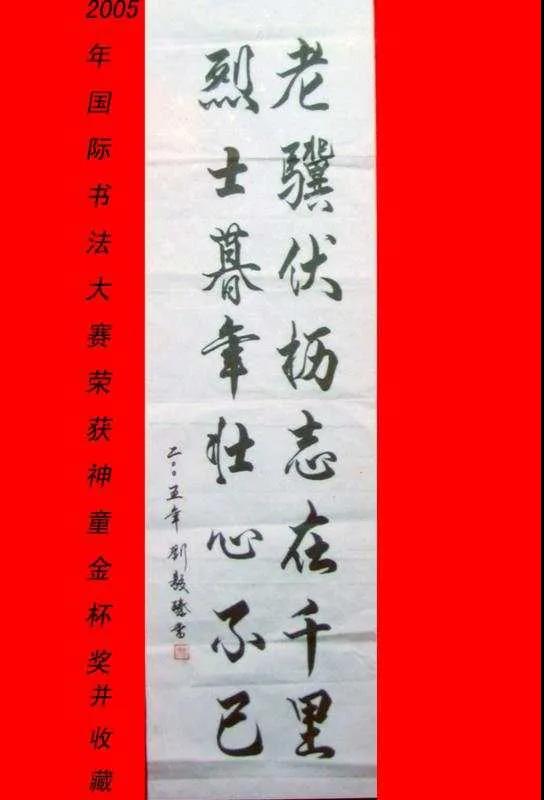 2005年国际书法大赛荣获神童金杯奖并收藏
老驥伏枥志在千里
烈士暮年壮心不已
二〇〇五年 劉毅 書